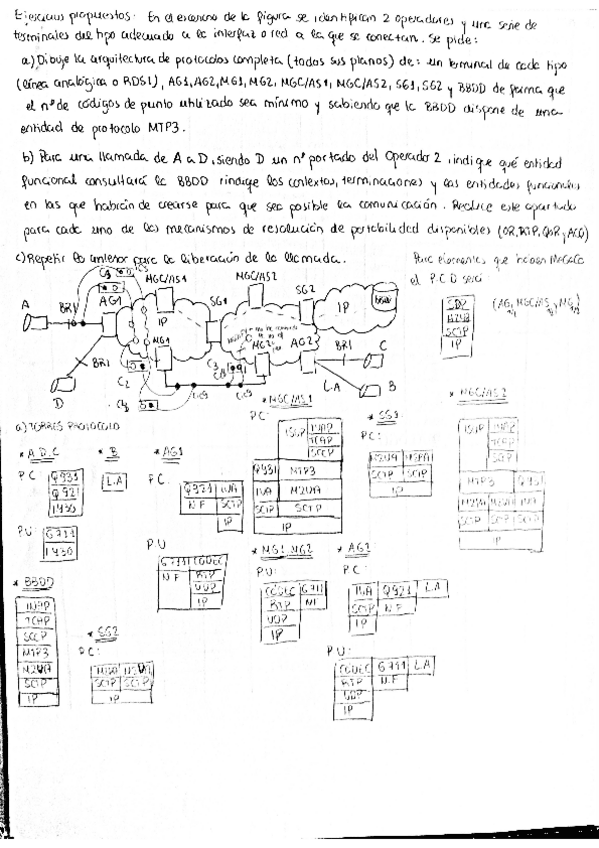 Ejercicios propuestos. En el escenario de la figura se identifican 2 operadores y una serie de
terminales del tipo adecuado a la interfaz o red a la que se conectan. Se pide:
a) Dibuje la arquitectura de protocolos completa (todos sus planos) de: un terminal de cada tipo
(línea analógica o RDSI), AG1, AG2, MG1, MG2, MGC/AS1, MGC/AS2, SG1, SG2 y BBDD de forma que
el nº de códigos de punto utilizado sea mínimo y sabiendo que la BBDD dispone de una
entidad de protocolo MTP3.
b) Para una llamada de A a D, siendo D un nº portado del Operador 2, indique qué entidad
funcional consultará la BBDD e indique los contextos, terminaciones y las entidades funcionales
en las que habrán de crearse para que sea posible la comunicación. Realice este apartado
para cada uno de los mecanismos de resolución de portabilidad disponibles (OR, RTP, QoR y ACQ)
c) Repetir lo anterior para la liberación de la llamada.
Para elementos que
el P.C D será
(AG, MGC/AS, MG)
MGC/AS1
MGC/AS2
SG1
SG2
IP
BBDD
A
BRI
AG1
IP
MG1
MG2
AG2
BRI
C
BRI
D
C2
L.A
B
a) TORRES PROTOCOLO
* A D C
PC
Q931
Q921
I430
PU:
G711
I430
* B
L.A
* AG1
PC:
Q921 IUA
N.F SCTP
IP
PU
G711 CODEC
N.F RTP
UDP
IP
* MGC/AS1
PC:
ISUP INAP
TCAP
SCCP
Q931 MTP3
IUA M2UA
SCTP SCTP
IP
* SG1
PC:
M2UA M2PA
SCTP SCTP
IP
* MGC/AS2
ISUP INAP
TCAP
SCCP
MTP3 Q931
SCTP SCTP SCTP
IP
* MG1 MG2
PU:
CODEC G711
RTP NF
UDP
IP
* AG2
PC:
IUA Q921 L.A
SCTP N.F
IP
PU:
CODEC G711 L.A
RTP N.F
UDP
IP
* BBDD
INAP
TCAP
SCCP
MTP3
M2UA
SCTP
IP
* SG2
PC:
SCTP SCTP
IP